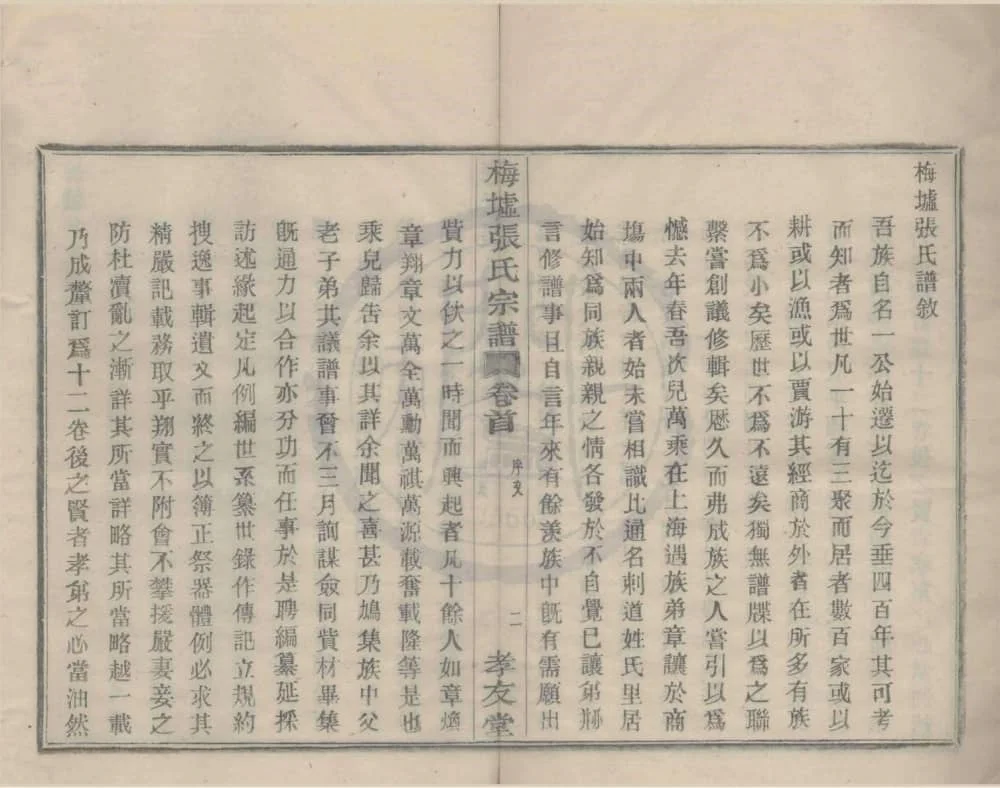 梅墟張氏譜敘
吾族自名一公始遷以迄於今垂四百年其可考
而知者爲世凡一十有三聚而居者數百家或以
耕或以漁或以賈游其經商於外者在所多有族
不爲小矣歷世不爲不遠矣獨無譜牒以爲之聯
繫嘗創議修輯矣歷久而弗成族之人嘗引以爲
憾去年春吾次兒萬乘在上海遇族弟章讓於商
塲中兩人者始未嘗相識比通名刺道姓氏里居
始知爲同族親親之情各發於不自覺巳讓弟驟
言修譜事且自言年來有餘羨族中旣有需願出
貲力以佽之一時聞而興起者凡十餘人如章煥
章翔章文萬全萬勳萬祺萬源載奮載隆等是也
乘兒歸告余以其詳余聞之喜甚乃鳩集族中父
老子弟共議譜事曾不三月詢謀僉同貲材畢集
旣通力以合作亦分功而任事於是聘編纂延採
訪述緣起定凡例編世系纂世錄作傳記立規約
搜逸事輯遺文而終之以簿正祭器體例必求其
精嚴記載務取乎翔實不附會不攀援嚴妻妾之
防杜瀆亂之漸詳其所當詳略其所當略越一載
乃成釐訂爲十二卷後之賢者孝弟之心當油然
梅墟張氏宗譜 卷首 序文 二 孝友堂